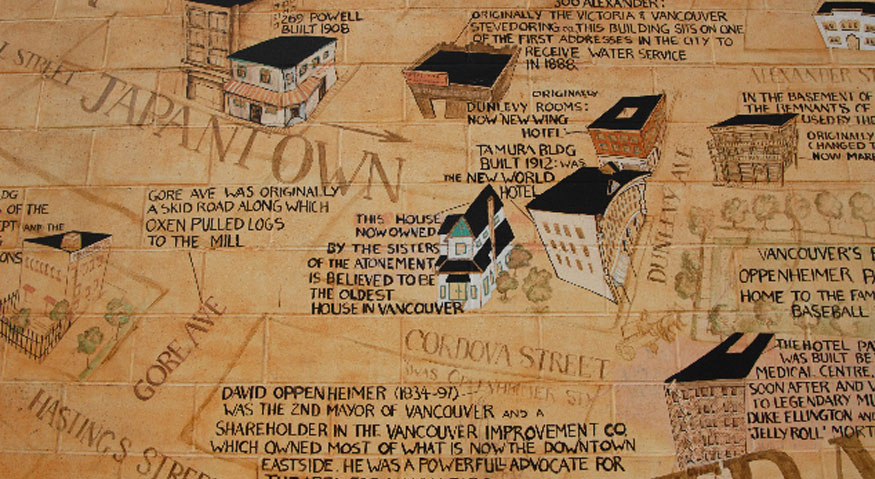 269 POWELL
BUILT 1908
300 ALEXANDER:
ORIGINALLY THE VICTORIA & VANCOUVER
STEVEDORING CO. THIS BUILDING SITS ON ONE
OF THE FIRST ADDRESSES IN THE CITY TO
RECEIVE WATER SERVICE
IN 1888.
STREET
JAPANTOWN
ALEXANDER ST
ORIGINALLY
DUNLEVY ROOMS:
NOW NEW WING
HOTEL
TAMURA BLDG
BUILT 1912: WAS
THE NEW WORLD
HOTEL
IN THE BASEMENT OF
THE REMNANT'S OF
USED BY THE
ORIGINALLY
CHANGED T
NOW MAR
DUNLEVY AVE
DG
S OF THE
EPT AND THE
G
IONS
GORE AVE WAS ORIGINALLY
A SKID ROAD ALONG WHICH
OXEN PULLED LOGS
TO THE MILL
THIS HOUSE
NOW OWNED
BY THE SISTERS
OF THE ATONEMENT
IS BELIEVED TO BE
THE OLDEST
HOUSE IN VANCOUVER
VANCOUVER'S
OPPENHEIMER PA
HOME TO THE FAM
BASEBALL
GORE AVE
CORDOVA STREET
WAS OPPENHEIMER ST
HASTINGS STREE
DAVID OPPENHEIMER (1834-97)
WAS THE 2ND MAYOR OF VANCOUVER AND A
SHAREHOLDER IN THE VANCOUVER IMPROVEMENT CO.
WHICH OWNED MOST OF WHAT IS NOW THE DOWNTOWN
EASTSIDE. HE WAS A POWERFULL ADVOCATE FOR
THE HOTEL PA
WAS BUILT BE
MEDICAL CENTRE.
SOON AFTER AND V
TO LEGENDARY MU
DUKE ELLINGTON AND
'JELLY ROLL' MORT